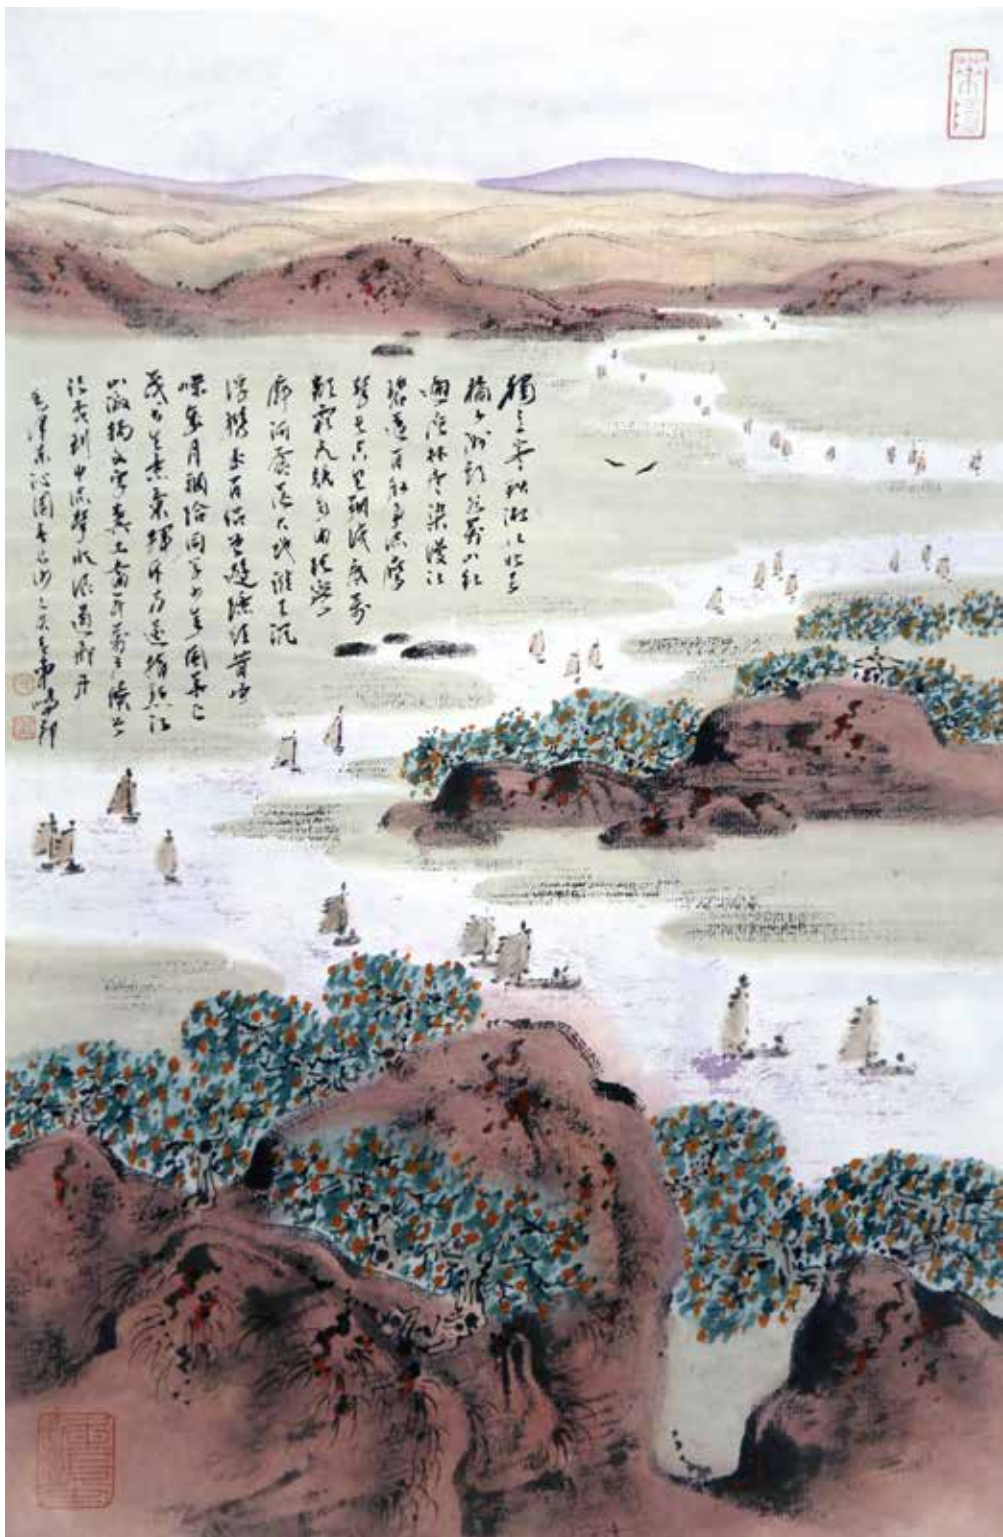 獨立寒秋湘江北去
橘子洲頭看萬山紅
遍層林盡染漫江
碧透百舸爭流鷹
擊長空魚翔淺底萬
類霜天競自由悵寥
廓問蒼茫大地誰主沉
浮攜來百侶曾遊憶往昔崢
嶸歲月稠恰同學少年風華正
茂書生意氣揮斥方遒指點江
山激揚文字糞土當年萬戶侯曾
記否到中流擊水浪遏飛舟
毛澤東沁園春長沙